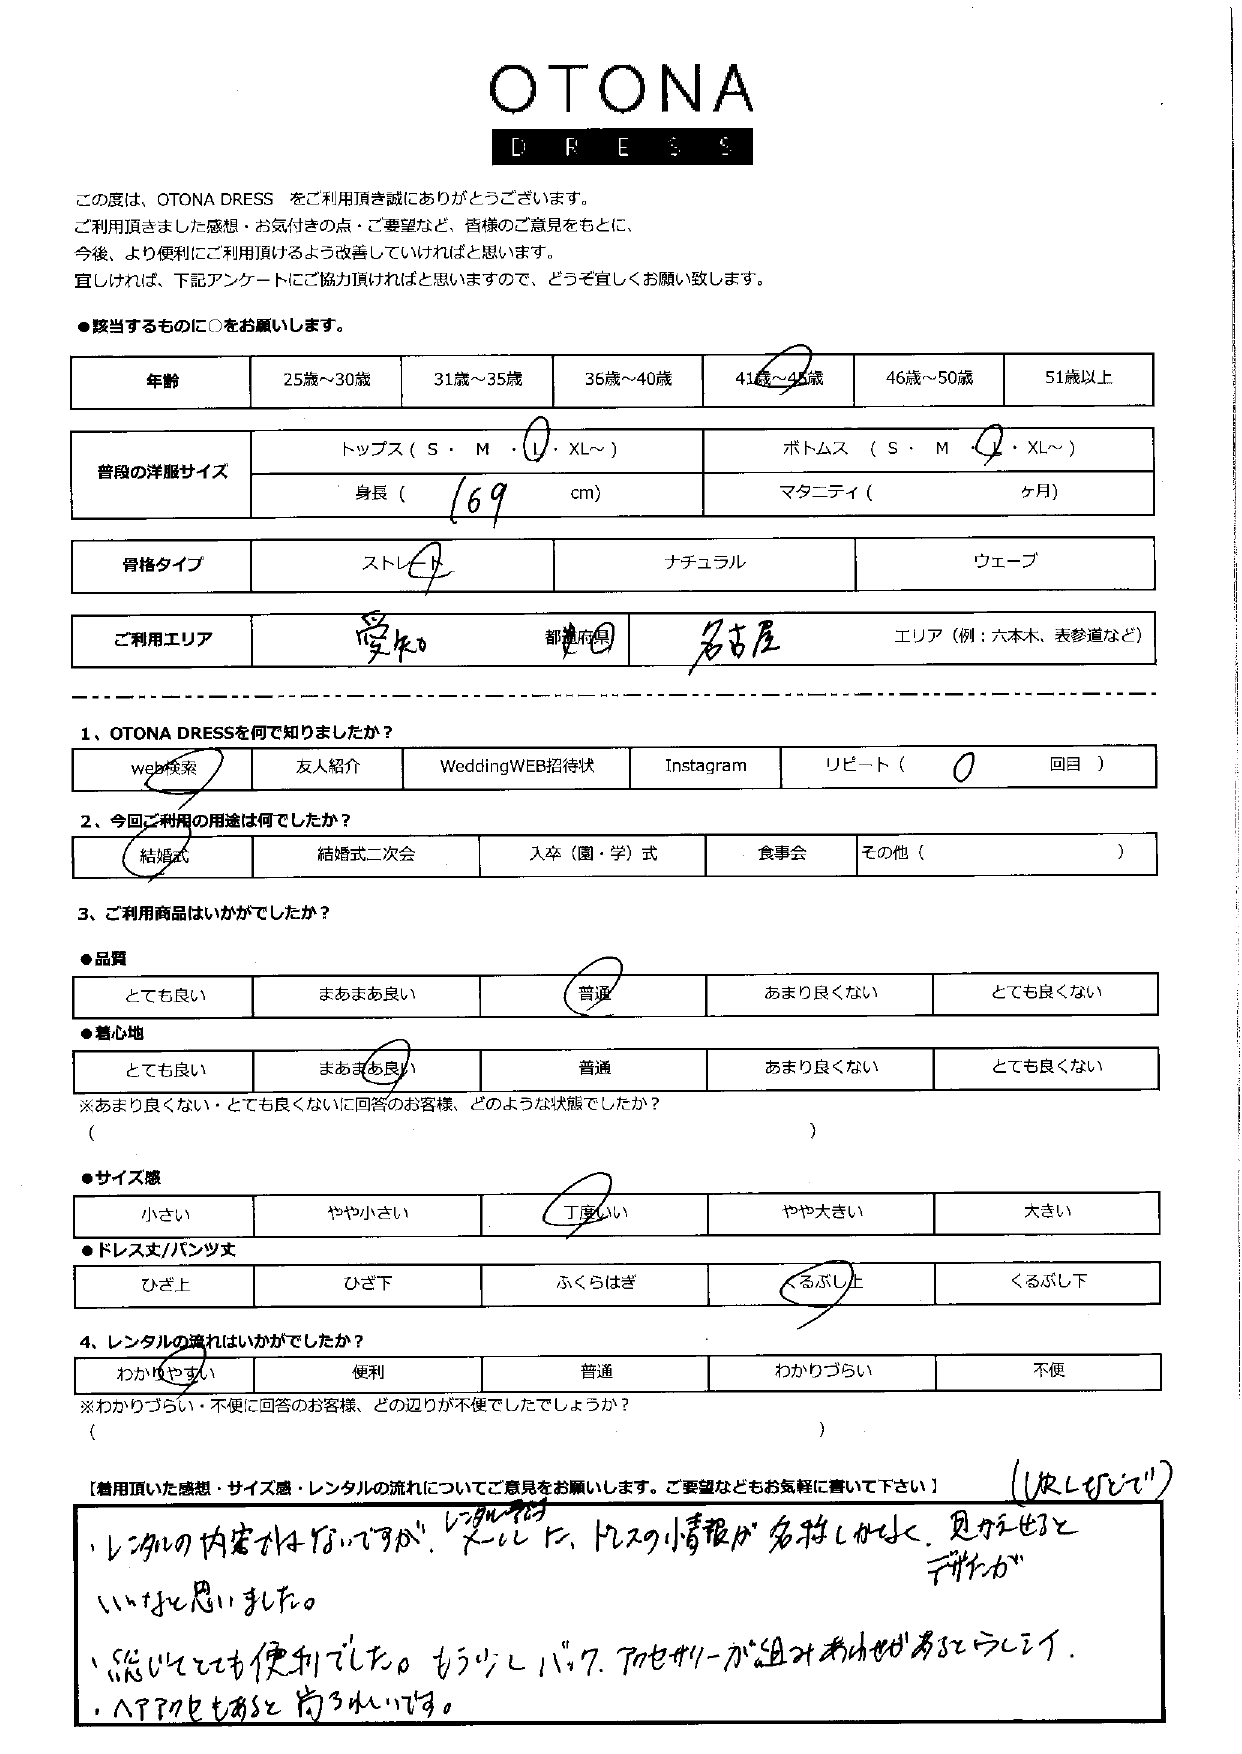 OTONA
DRESS
この度は、OTONA DRESS　をご利用頂き誠にありがとうございます。
ご利用頂きました感想・お気付きの点・ご要望など、皆様のご意見をもとに、
今後、より便利にご利用頂けるよう改善していければと思います。
宜しければ、下記アンケートにご協力頂ければと思いますので、どうぞ宜しくお願い致します。
●該当するものに○をお願いします。
年齢 25歳～30歳 31歳～35歳 36歳～40歳 41歳～45歳 46歳～50歳 51歳以上
普段の洋服サイズ トップス ( S ・ M ・ L ・ XL～ ) ボトムス ( S ・ M ・ L ・ XL～ )
身長 ( 169 cm) マタニティ ( ヶ月)
骨格タイプ ストレート ナチュラル ウェーブ
ご利用エリア 愛知 都道府県 名古屋 エリア（例：六本木、表参道など）
1、OTONA DRESSを何で知りましたか？
web検索 友人紹介 WeddingWEB招待状 Instagram リピート ( 0 回目 )
2、今回ご利用の用途は何でしたか？
結婚式 結婚式二次会 入卒（園・学）式 食事会 その他 ( )
3、ご利用商品はいかがでしたか？
●品質
とても良い まあまあ良い 普通 あまり良くない とても良くない
●着心地
とても良い まあまあ良い 普通 あまり良くない とても良くない
※あまり良くない・とても良くないに回答のお客様、どのような状態でしたか？
( )
●サイズ感
小さい やや小さい 丁度いい やや大きい 大きい
●ドレス丈/パンツ丈
ひざ上 ひざ下 ふくらはぎ くるぶし上 くるぶし下
4、レンタルの流れはいかがでしたか？
わかりやすい 便利 普通 わかりづらい 不便
※わかりづらい・不便に回答のお客様、どの辺りが不便でしたでしょうか？
( )
【着用頂いた感想・サイズ感・レンタルの流れについてご意見をお願いします。ご要望などもお気軽に書いて下さい】
(URLなどで)
レンタル
・レンタルの内容ではないですが、メールした、ドレスの情報が名称しかなく、見かえせると
デザインが
いいなと思いました。
・総じてとても便利でした。もう少しバック、アクセサリーが組みあわせがあるとうれしイ.
・ヘアアクセもあると尚うれしいです。